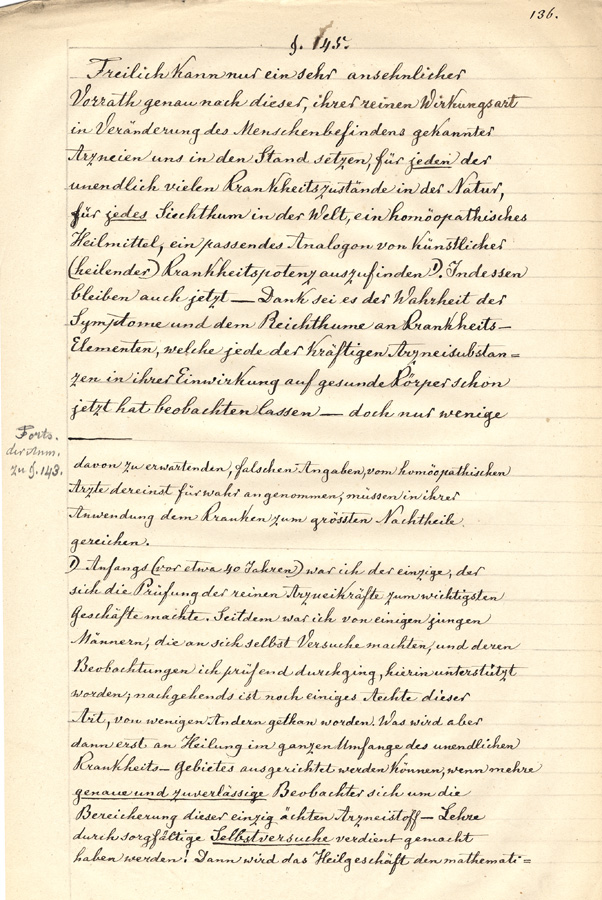 136.
§. 145.
Freilich kann nur ein sehr ansehnlicher
Vorrath genau nach dieser, ihrer reinen Wirkungsart
in Veränderung des Menschenbefindens gekannter
Arzneien uns in den Stand setzen, für jeden der
unendlich vielen Krankheitszustände in der Natur,
für jedes Siechthum in der Welt, ein homöopathisches
Heilmittel, ein passendes Analogon von künstlicher
(heilender) Krankheitspotenz auszufinden 1). Indessen
bleiben auch jetzt — Dank sei es der Wahrheit der
Symptome und dem Reichthume an Krankheits-
Elementen, welche jede der kräftigen Arzneisubstan=
zen in ihrer Einwirkung auf gesunde Körper schon
jetzt hat beobachten lassen — doch nur wenige
Forts.
der Anm.
zu §. 143.
davon zu erwartenden, falschen Angaben, vom homöopathischen
Arzte dereinst für wahr angenommen, müssen in ihrer
Anwendung dem Kranken zum grössten Nachtheile
gereichen.
1) Anfangs (vor etwa 40 Jahren) war ich der einzige, der
sich die Prüfung der reinen Arzneikräfte zum wichtigsten
Geschäfte machte. Seitdem war ich von einigen jungen
Männern, die an sich selbst Versuche machten, und deren
Beobachtungen ich prüfend durchging, hierin unterstützt
worden; nachgehends ist noch einiges Aechte dieser
Art, von wenigen Andern gethan worden. Was wird aber
dann erst an Heilung im ganzen Umfange des unendlichen
Krankheits-Gebietes ausgerichtet werden können, wenn mehre
genaue und zuverlässige Beobachter sich um die
Bereicherung dieser einzig ächten Arzneistoff-Lehre
durch sorgfältige Selbstversuche verdient gemacht
haben werden! Dann wird das Heilgeschäft den mathemati=